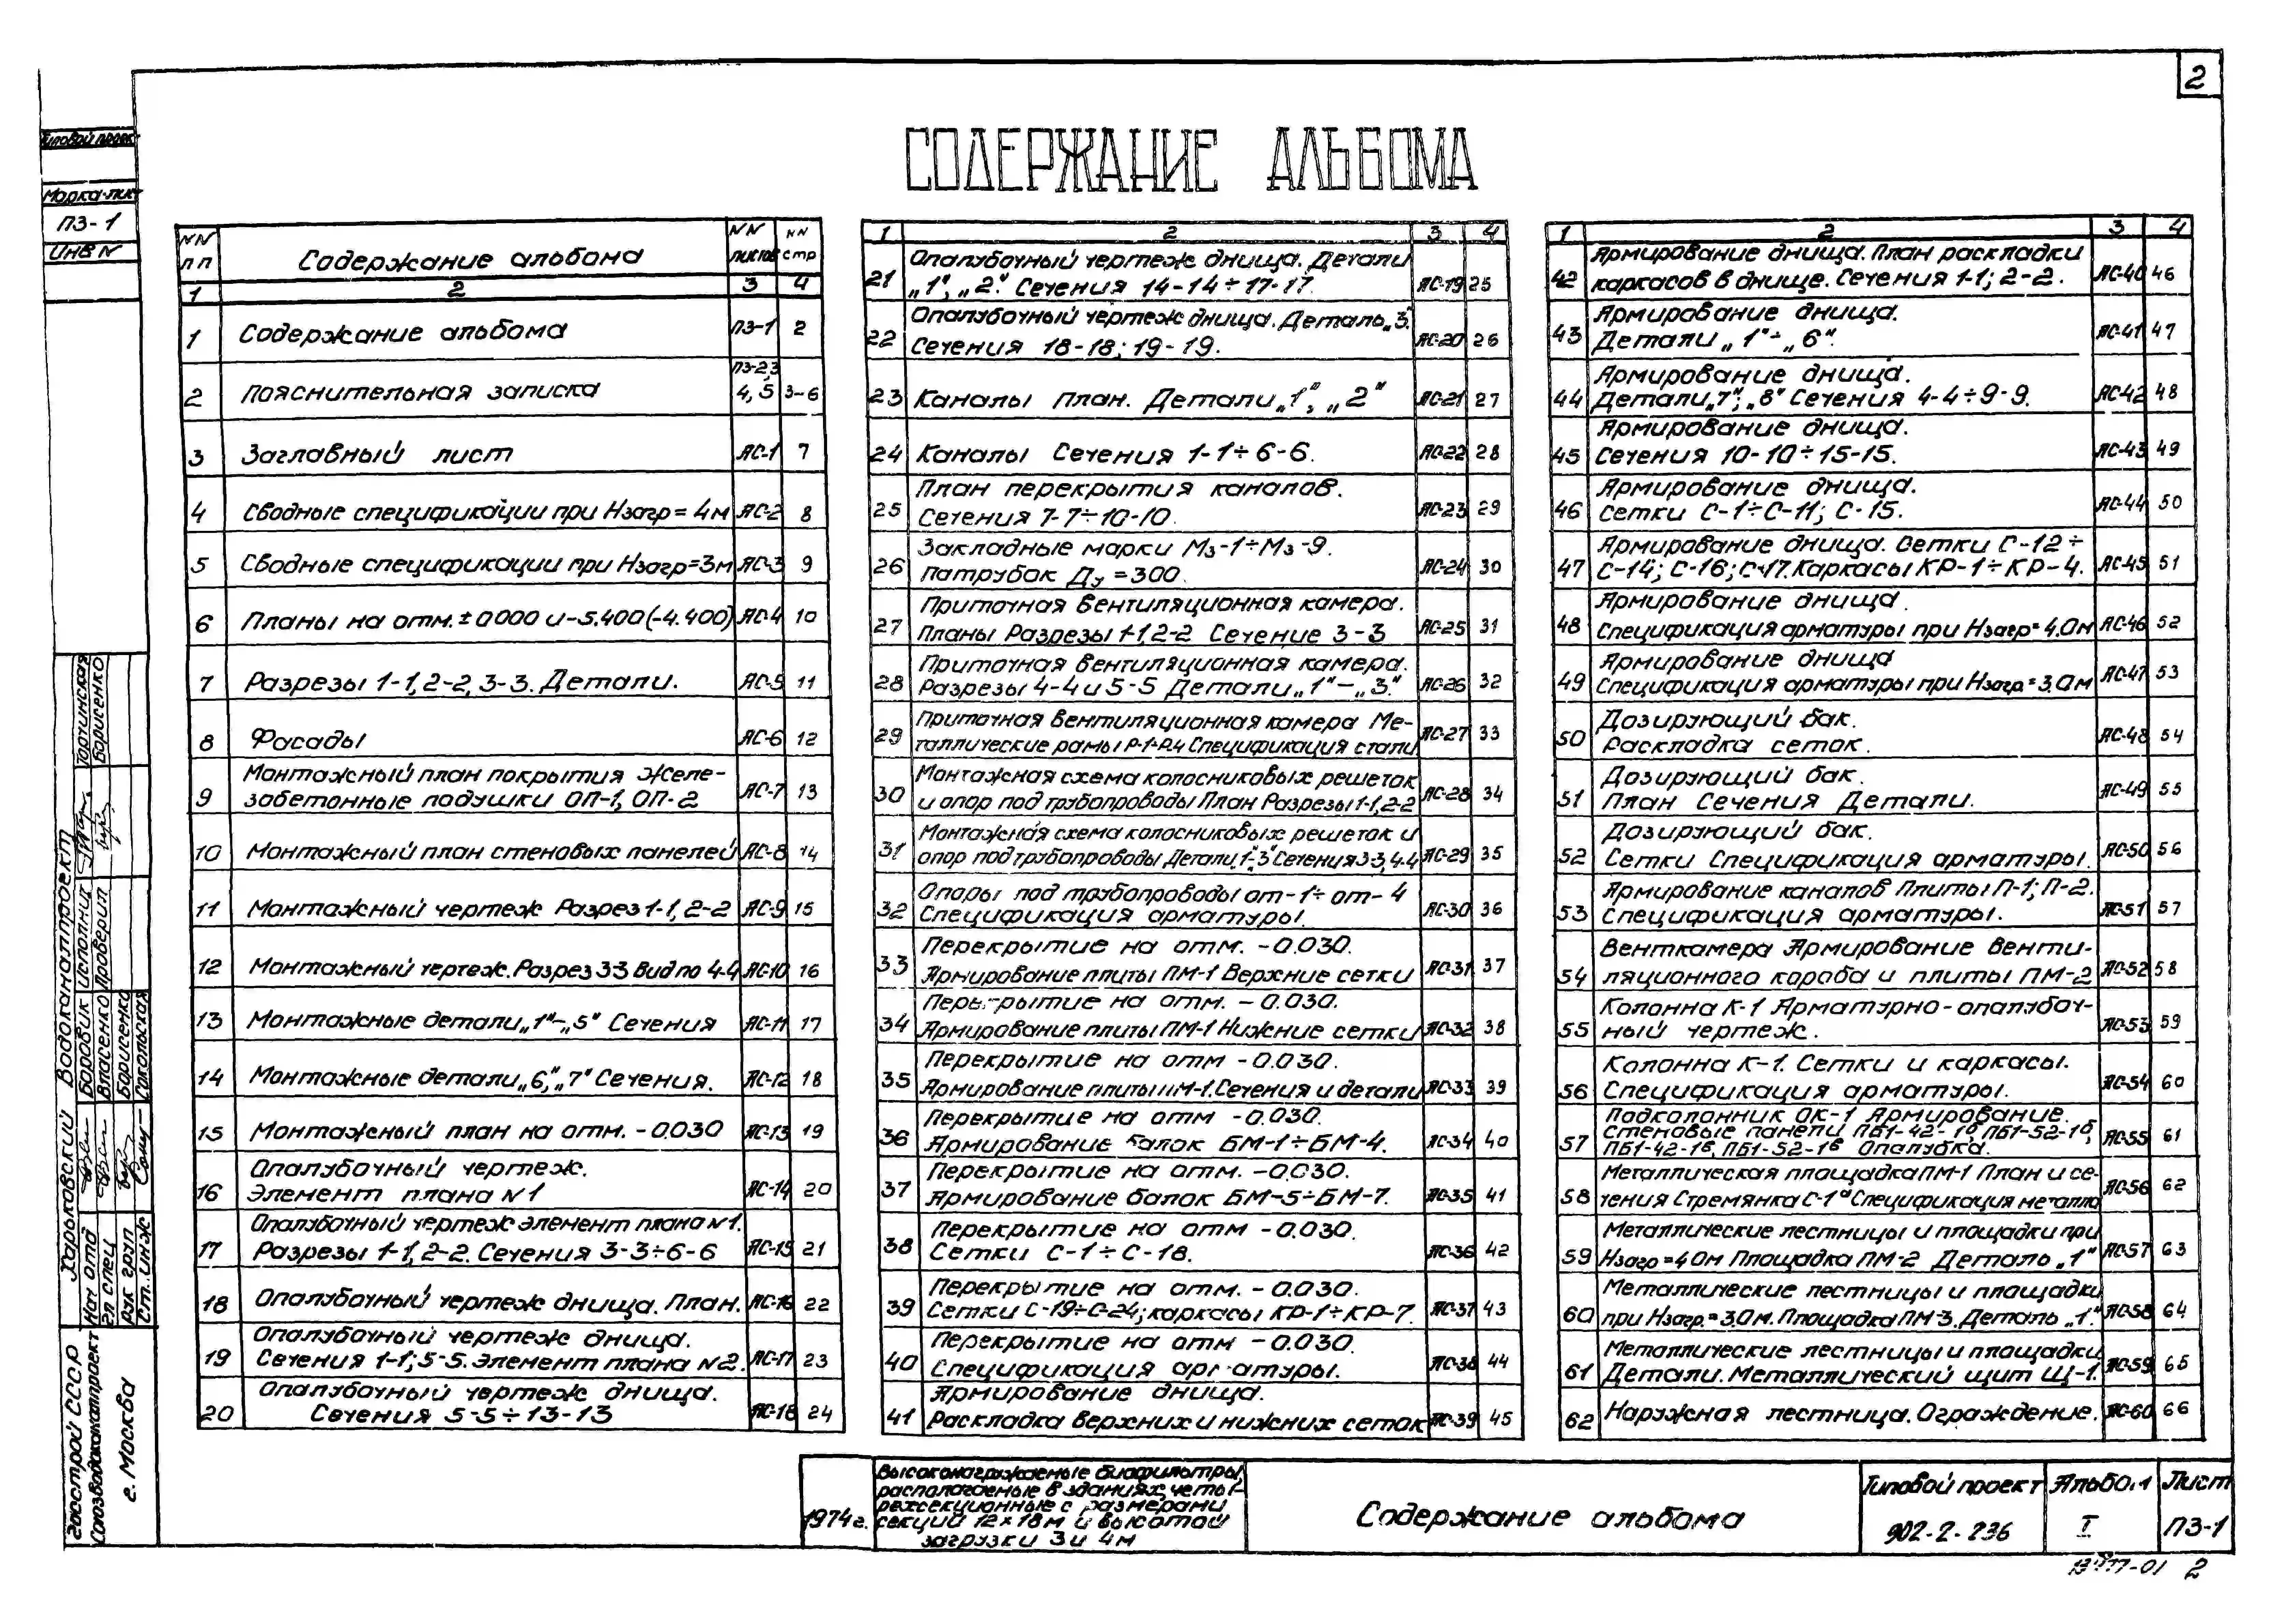 2
СОДЕРЖАНИЕ АЛЬБОМА
Типовой проек
Марка-лист
ПЗ-1
ИНВ N
NN пп Содержание альбома NN листов NN стр
1 2 3 4
1 Содержание альбома ПЗ-1 2
2 Пояснительная записка ПЗ-2,3 4,5 3-6
3 Заглавный лист АС-1 7
4 Сводные спецификации при Нзагр = 4м АС-2 8
5 Сводные спецификации при Нзагр=3м АС-3 9
6 Планы на отм. ±0000 и -5.400 (-4.400) АС-4 10
7 Разрезы 1-1, 2-2, 3-3. Детали. АС-5 11
8 Фасады АС-6 12
9 Монтажный план покрытия Железобетонные подушки ОП-1, ОП-2 АС-7 13
10 Монтажный план стеновых панелей АС-8 14
11 Монтажный чертеж Разрез 1-1, 2-2 АС-9 15
12 Монтажный чертеж. Разрез 3-3 Вид по 4-4 АС-10 16
13 Монтажные детали „1"-„5" Сечения АС-11 17
14 Монтажные детали „6", „7" Сечения. АС-12 18
15 Монтажный план на отм. -0.030 АС-13 19
16 Опалубочный чертеж.
Элемент плана N1 АС-14 20
17 Опалубочный чертеж элемент плана N1.
Разрезы 1-1, 2-2. Сечения 3-3÷6-6 АС-15 21
18 Опалубочный чертеж днища. План. АС-16 22
19 Опалубочный чертеж днища.
Сечения 1-1; 5-5. Элемент плана N2. АС-17 23
20 Опалубочный чертеж днища.
Сечения 5-5÷13-13 АС-18 24
1 2 3 4
21 Опалубочный чертеж днища. Детали
„1", „2". Сечения 14-14÷17-17. АС-19 25
22 Опалубочный чертеж днища. Деталь „3".
Сечения 18-18; 19-19. АС-20 26
23 Каналы план. Детали „1", „2" АС-21 27
24 Каналы Сечения 1-1÷6-6. АС-22 28
25 План перекрытия каналов.
Сечения 7-7÷10-10. АС-23 29
26 Закладные марки Мз-1÷Мз-9.
Патрубок Ду=300. АС-24 30
27 Приточная вентиляционная камера.
Планы Разрезы 1-1, 2-2 Сечение 3-3 АС-25 31
28 Приточная вентиляционная камера.
Разрезы 4-4 и 5-5 Детали „1"-„3." АС-26 32
29 Приточная вентиляционная камера Ме-
таллические рамы Р-1÷Р4 Спецификация стали АС-27 33
30 Монтажная схема колосниковых решеток
и опор под трубопроводы План Разрезы 1-1, 2-2 АС-28 34
31 Монтажная схема колосниковых решеток и
опор под трубопроводы Детали „1"-„3" Сечения 3-3, 4-4 АС-29 35
32 Опоры под трубопроводы от-1÷от-4
Спецификация арматуры. АС-30 36
33 Перекрытие на отм. -0.030.
Армирование плиты ПМ-1 Верхние сетки АС-31 37
34 Перекрытие на отм. -0.030.
Армирование плиты ПМ-1 Нижние сетки АС-32 38
35 Перекрытие на отм -0.030.
Армирование плиты ПМ-1. Сечения и детали АС-33 39
36 Перекрытие на отм -0.030.
Армирование балок БМ-1÷БМ-4. АС-34 40
37 Перекрытие на отм. -0.030.
Армирование балок БМ-5÷БМ-7. АС-35 41
38 Перекрытие на отм -0.030.
Сетки С-1÷С-18. АС-36 42
39 Перекрытие на отм. -0.030.
Сетки С-19÷С-24; каркасы КР-1÷КР-7. АС-37 43
40 Перекрытие на отм -0.030.
Спецификация арматуры. АС-38 44
41 Армирование днища.
Раскладка верхних и нижних сеток АС-39 45
1 2 3 4
42 Армирование днища. План раскладки
каркасов в днище. Сечения 1-1; 2-2. АС-40 46
43 Армирование днища.
Детали „1"÷„6". АС-41 47
44 Армирование днища.
Детали „7", „8" Сечения 4-4÷9-9. АС-42 48
45 Армирование днища.
Сечения 10-10÷15-15. АС-43 49
46 Армирование днища.
сетки С-1÷С-11; С-15. АС-44 50
47 Армирование днища. Сетки С-12÷
С-14; С-16; С-17. Каркасы КР-1÷КР-4. АС-45 51
48 Армирование днища.
Спецификация арматуры при Нзагр=4.0м АС-46 52
49 Армирование днища
Спецификация арматуры при Нзагр.=3.0м АС-47 53
50 Дозирующий бак.
Раскладка сеток. АС-48 54
51 Дозирующий бак.
План Сечения Детали. АС-49 55
52 Дозирующий бак.
Сетки Спецификация арматуры. АС-50 56
53 Армирование каналов Плиты П-1; П-2.
Спецификация арматуры. АС-51 57
54 Венткамера Армирование венти-
ляционного короба и плиты ПМ-2 АС-52 58
55 Колонна К-1 Арматурно-опалубоч-
ный чертеж. АС-53 59
56 Колонна К-1. Сетки и каркасы.
Спецификация арматуры. АС-54 60
57 Подколонник ОК-1 Армирование.
Стеновые панели ПБ1-42-1а, ПБ1-52-1б,
ПБ1-42-1в, ПБ1-52-1в Опалубка. АС-55 61
58 Металлическая площадка ПМ-1 План и се-
чения Стремянка С-1а Спецификация металла АС-56 62
59 Металлические лестницы и площадки при
Нзагр=4.0м Площадка ПМ-2 Деталь „1" АС-57 63
60 Металлические лестницы и площадки
при Нзагр.=3.0м. Площадка ПМ-3. Деталь „1". АС-58 64
61 Металлические лестницы и площадки
Детали. Металлический щит Щ-1. АС-59 65
62 Наружная лестница. Ограждение. АС-60 66
Госстрой СССР
Союзводоканалпроект
г. Москва
Харьковский Водоканалпроект
Нач отд Боровик
Гл спец Власенко
Рук груп Борисенко
Ст. инж Сокольская
Исполнил Торчинская
Проверил Борисенко
1974г.
Высоконагружаемые биофильтры,
располагаемые в зданиях, четы-
рехсекционные с размерами
секций 12×18м и высотой
загрузки 3 и 4м
Содержание альбома
Типовой проект
902-2-236
Альбом
I
Лист
ПЗ-1
2